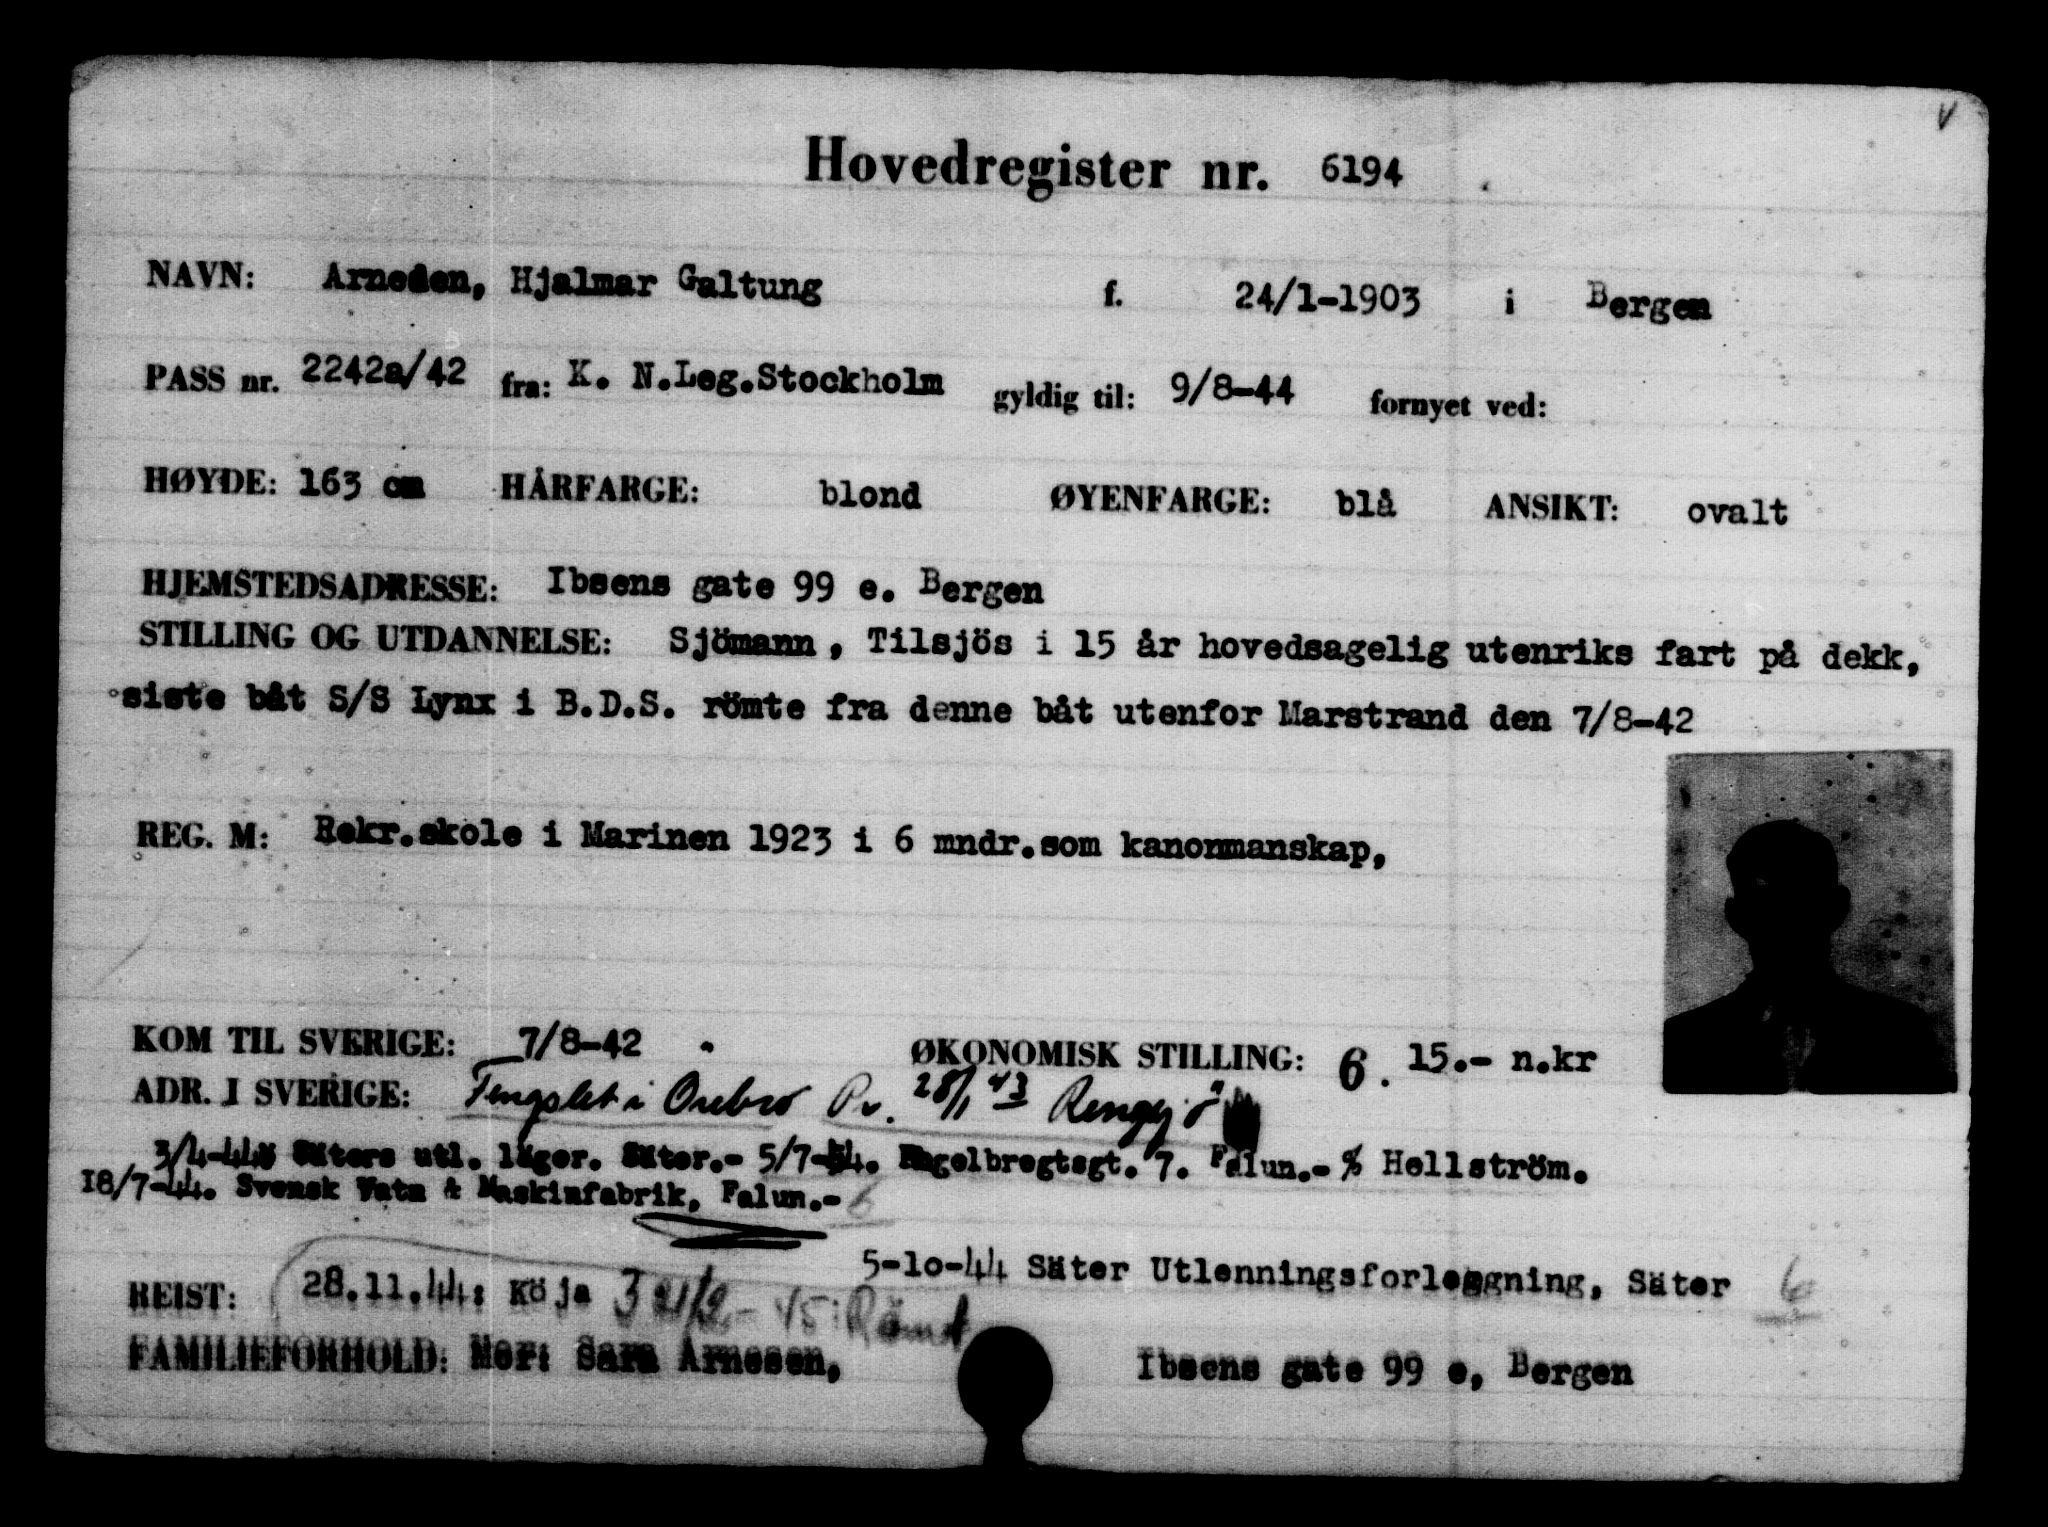 Hovedregister nr. 6194
NAVN: Arneden, Hjalmar Galtung f. 24/1-1903 i Bergen
PASS nr. 2242a/42 fra: K. N.Leg.Stockholm gyldig til: 9/8-44 fornyet ved:
HØYDE: 163 cm HÅRFARGE: blond ØYENFARGE: blå ANSIKT: ovalt
HJEMSTEDSADRESSE: Ibsens gate 99 e. Bergen
STILLING OG UTDANNELSE: Sjömann, Tilsjös i 15 år hovedsagelig utenriks fart på dekk,
siste båt S/S Lynx i B.D.S. römte fra denne båt utenfor Marstrand den 7/8-42
REG. M: Rekr.skole i Marinen 1923 i 6 mndr.som kanonmanskap,
KOM TIL SVERIGE: 7/8-42 ØKONOMISK STILLING: 6. 15.- n.kr
ADR. I SVERIGE: Fengslet i Örebro Pr. 28/1 43 Rengsjö
3/4-44 Säters utl. läger. Säter.- 5/7-44. Engelbregtsgt. 7. Falun.- % Hellström.
18/7-44. Svensk Vatn & Maskinfabrik, Falun.- 6
5-10-44 Säter Utlenningsforleggning, Säter 6
REIST: 28.11.44: Köja 3 21/2-45: Römt
FAMILIEFORHOLD: Mor: Sara Arnesen, Ibsens gate 99 e, Bergen